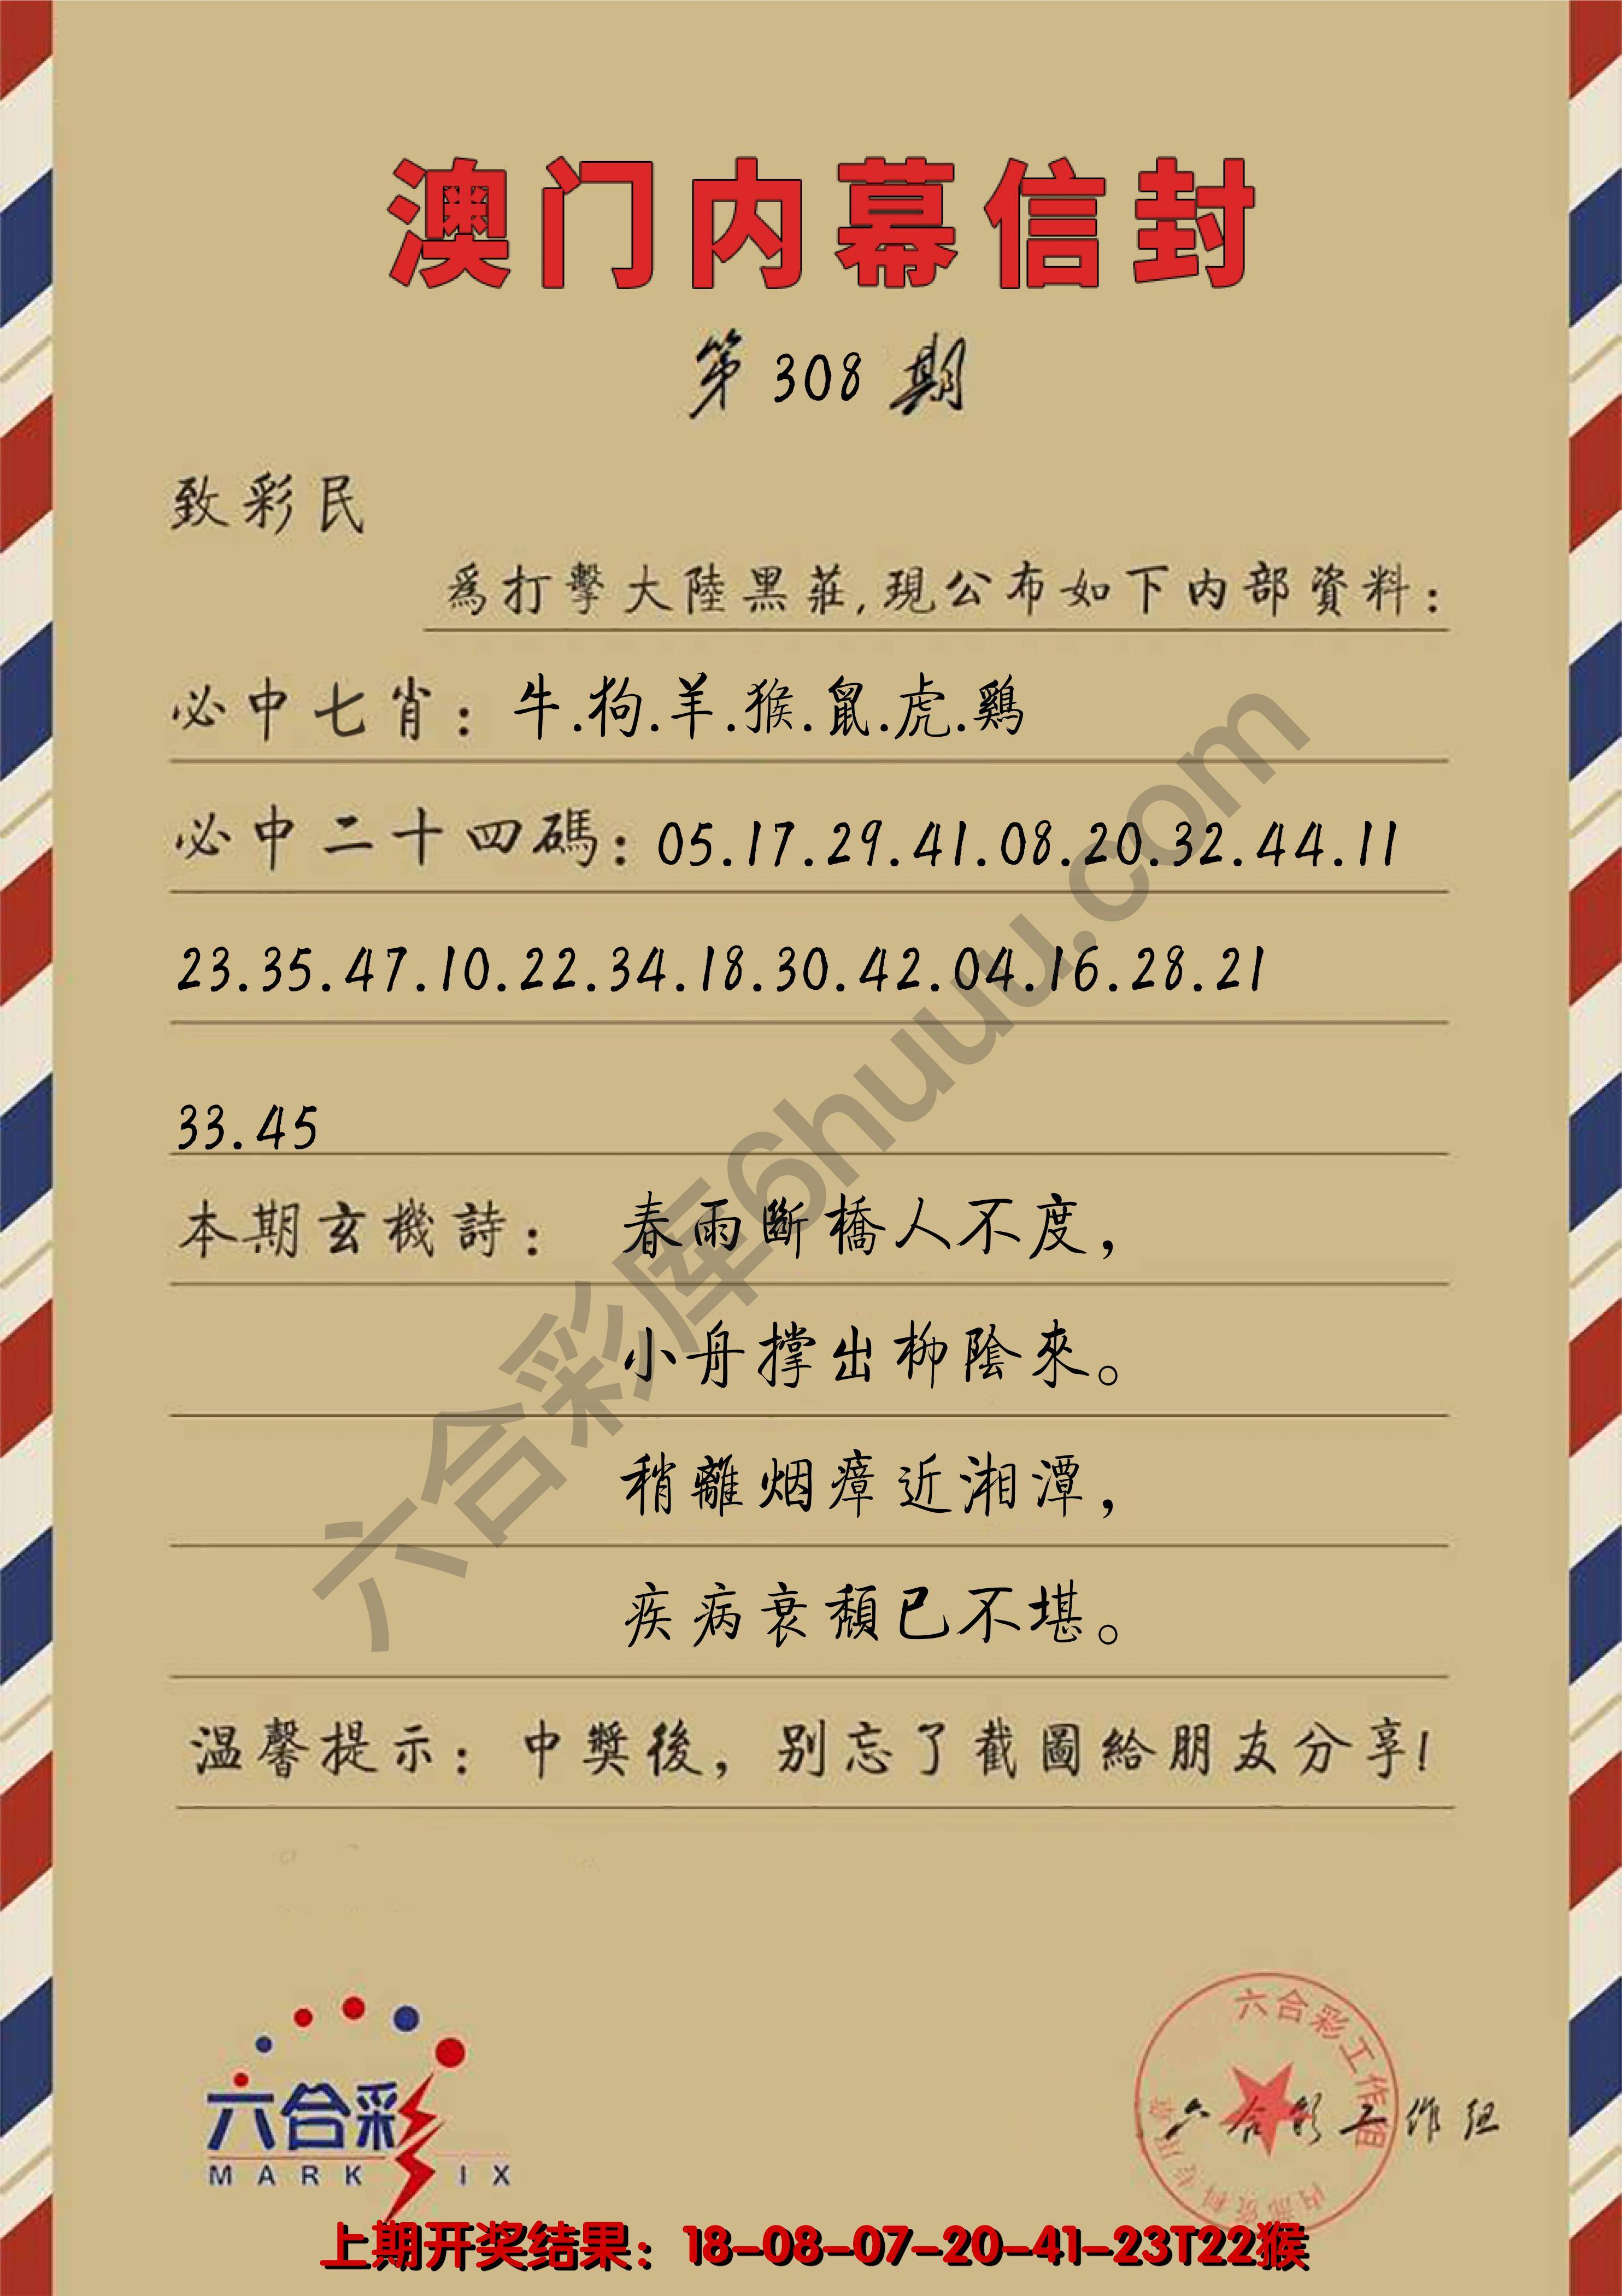 澳门内幕信封
第 308 期
致彩民
爲打擊大陸黑莊,現公布如下内部資料:
必中七肖: 牛.狗.羊.猴.鼠.虎.鷄
必中二十四碼: 05.17.29.41.08.20.32.44.11
23.35.47.10.22.34.18.30.42.04.16.28.21
33.45
本期玄機詩: 春雨斷橋人不度,
小舟撑出柳陰來。
稍離烟瘴近湘潭,
疾病衰頹已不堪。
温馨提示: 中獎後, 别忘了截圖給朋友分享!
六合彩库6huuu.com
六合彩
MARK IX
六合彩工作组
内部资料专用章
六合彩工作组
上期开奖结果: 18-08-07-20-41-23T22猴